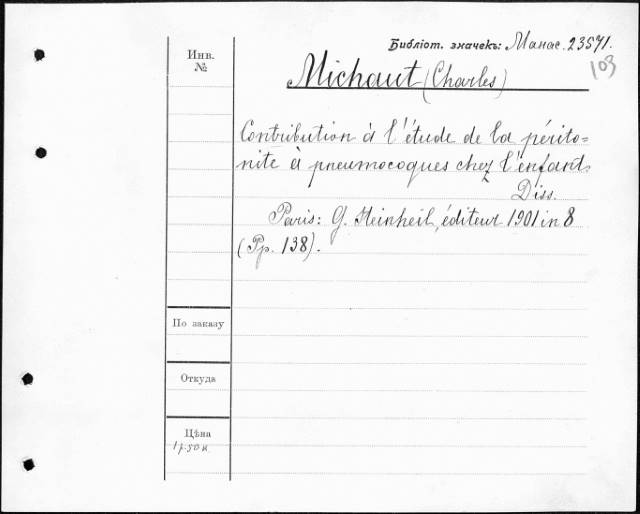 Библіот. значекъ: Манас. 23571.
103
Инв.
№
Michaut (Charles)
Contribution à l'étude de la périto=
nite à pneumocoques chez l'enfant.
Diss.
Paris: G. Steinheil, éditeur 1901 in 8
(Pp. 138).
По заказу
Откуда
Цѣна
1 р. 50 к.